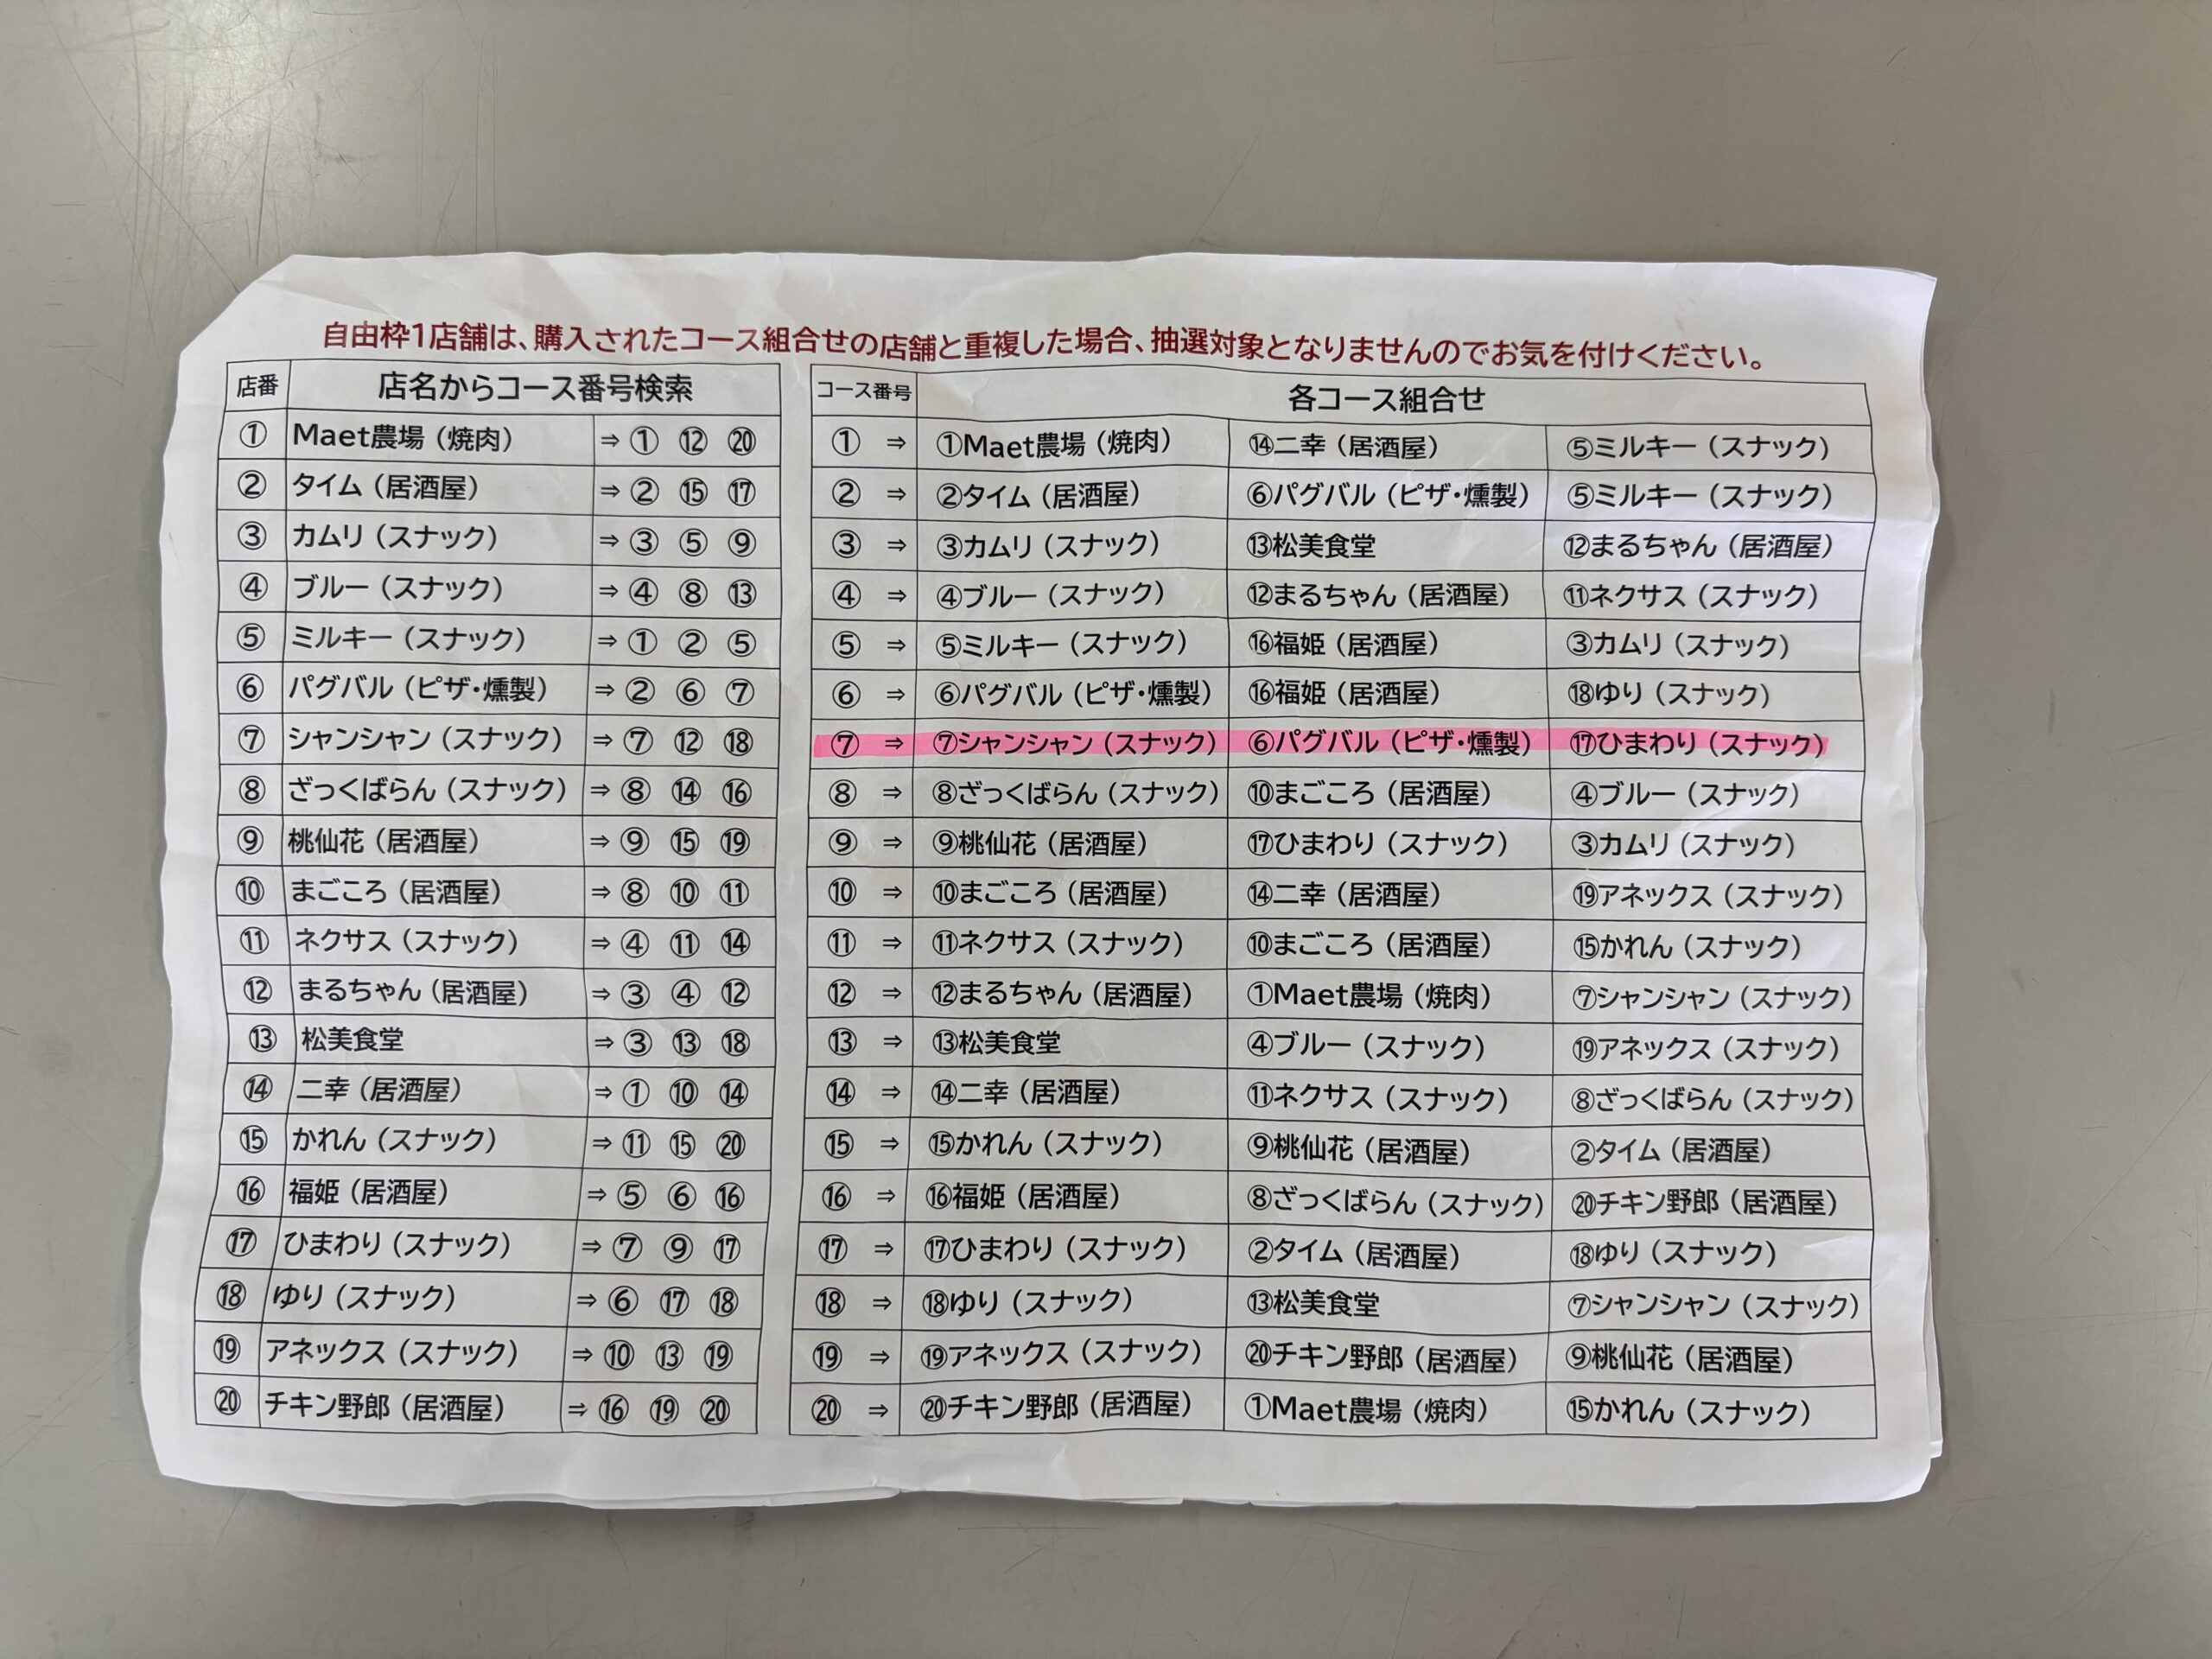 自由枠1店舗は、購入されたコース組合せの店舗と重複した場合、抽選対象となりませんのでお気を付けください。
店番 店名からコース番号検索
① Maet農場（焼肉） ⇒ ① ⑫ ⑳
② タイム（居酒屋） ⇒ ② ⑮ ⑰
③ カムリ（スナック） ⇒ ③ ⑤ ⑨
④ ブルー（スナック） ⇒ ④ ⑧ ⑬
⑤ ミルキー（スナック） ⇒ ① ② ⑤
⑥ パグバル（ピザ・燻製） ⇒ ② ⑥ ⑦
⑦ シャンシャン（スナック） ⇒ ⑦ ⑫ ⑱
⑧ ざっくばらん（スナック） ⇒ ⑧ ⑭ ⑯
⑨ 桃仙花（居酒屋） ⇒ ⑨ ⑮ ⑲
⑩ まごころ（居酒屋） ⇒ ⑧ ⑩ ⑪
⑪ ネクサス（スナック） ⇒ ④ ⑪ ⑭
⑫ まるちゃん（居酒屋） ⇒ ③ ④ ⑫
⑬ 松美食堂 ⇒ ③ ⑬ ⑱
⑭ 二幸（居酒屋） ⇒ ① ⑩ ⑭
⑮ かれん（スナック） ⇒ ⑪ ⑮ ⑳
⑯ 福姫（居酒屋） ⇒ ⑤ ⑥ ⑯
⑰ ひまわり（スナック） ⇒ ⑦ ⑨ ⑰
⑱ ゆり（スナック） ⇒ ⑥ ⑰ ⑱
⑲ アネックス（スナック） ⇒ ⑩ ⑬ ⑲
⑳ チキン野郎（居酒屋） ⇒ ⑯ ⑲ ⑳
コース番号 各コース組合せ
① ⇒ ①Maet農場（焼肉） ⑭二幸（居酒屋） ⑤ミルキー（スナック）
② ⇒ ②タイム（居酒屋） ⑥パグバル（ピザ・燻製） ⑤ミルキー（スナック）
③ ⇒ ③カムリ（スナック） ⑬松美食堂 ⑫まるちゃん（居酒屋）
④ ⇒ ④ブルー（スナック） ⑫まるちゃん（居酒屋） ⑪ネクサス（スナック）
⑤ ⇒ ⑤ミルキー（スナック） ⑯福姫（居酒屋） ③カムリ（スナック）
⑥ ⇒ ⑥パグバル（ピザ・燻製） ⑯福姫（居酒屋） ⑱ゆり（スナック）
⑦ ⇒ ⑦シャンシャン（スナック） ⑥パグバル（ピザ・燻製） ⑰ひまわり（スナック）
⑧ ⇒ ⑧ざっくばらん（スナック） ⑩まごころ（居酒屋） ④ブルー（スナック）
⑨ ⇒ ⑨桃仙花（居酒屋） ⑰ひまわり（スナック） ③カムリ（スナック）
⑩ ⇒ ⑩まごころ（居酒屋） ⑭二幸（居酒屋） ⑲アネックス（スナック）
⑪ ⇒ ⑪ネクサス（スナック） ⑩まごころ（居酒屋） ⑮かれん（スナック）
⑫ ⇒ ⑫まるちゃん（居酒屋） ①Maet農場（焼肉） ⑦シャンシャン（スナック）
⑬ ⇒ ⑬松美食堂 ④ブルー（スナック） ⑲アネックス（スナック）
⑭ ⇒ ⑭二幸（居酒屋） ⑪ネクサス（スナック） ⑧ざっくばらん（スナック）
⑮ ⇒ ⑮かれん（スナック） ⑨桃仙花（居酒屋） ②タイム（居酒屋）
⑯ ⇒ ⑯福姫（居酒屋） ⑧ざっくばらん（スナック） ⑳チキン野郎（居酒屋）
⑰ ⇒ ⑰ひまわり（スナック） ②タイム（居酒屋） ⑱ゆり（スナック）
⑱ ⇒ ⑱ゆり（スナック） ⑬松美食堂 ⑦シャンシャン（スナック）
⑲ ⇒ ⑲アネックス（スナック） ⑳チキン野郎（居酒屋） ⑨桃仙花（居酒屋）
⑳ ⇒ ⑳チキン野郎（居酒屋） ①Maet農場（焼肉） ⑮かれん（スナック）